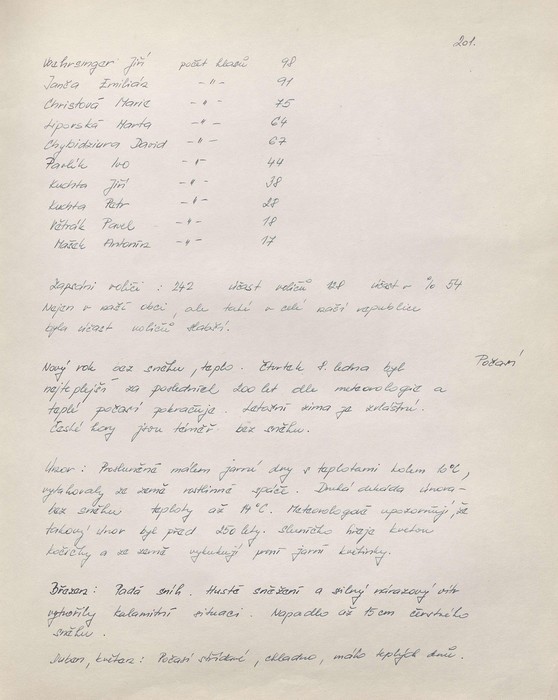 201.
Wehrsinger Jiří počet hlasů 98
Janča Emilián -"- 91
Christová Marie -"- 75
Liparská Marta -"- 64
Chybidziura David -"- 67
Pavlík Ivo -"- 44
Kuchta Jiří -"- 38
Kuchta Petr -"- 28
Větrák Pavel -"- 18
Mažek Antonín -"- 17
Zapsaní voliči : 242 účast voličů 128 účast v % 54
Nejen v naší obci, ale také v celé naší republice
byla účast voličů slabší.
Počasí
Nový rok bez sněhu, teplo. Čtvrtek 8. ledna byl
nejteplejší za posledních 200 let dle meteorologie a
teplé počasí pokračuje. Letošní zima je zvláštní.
České hory jsou téměř bez sněhu.
Únor : Prosluněné málem jarní dny s teplotami kolem 10°C,
vytahovaly ze země rostlinné spáče. Druhá dekáda února -
bez sněhu teploty až 14°C. Meteorologové upozorňují, že
takový únor byl před 250 lety. Sluníčko hřeje kvetou
kočičky a ze země vykukují první jarní květinky.
Březen : Padá sníh. Husté sněžení a silný nárazový vítr
vytvořily kalamitní situaci. Napadlo až 15 cm čerstvého
sněhu.
Duben, květen : Počasí střídavé, chladno, málo teplých dnů.